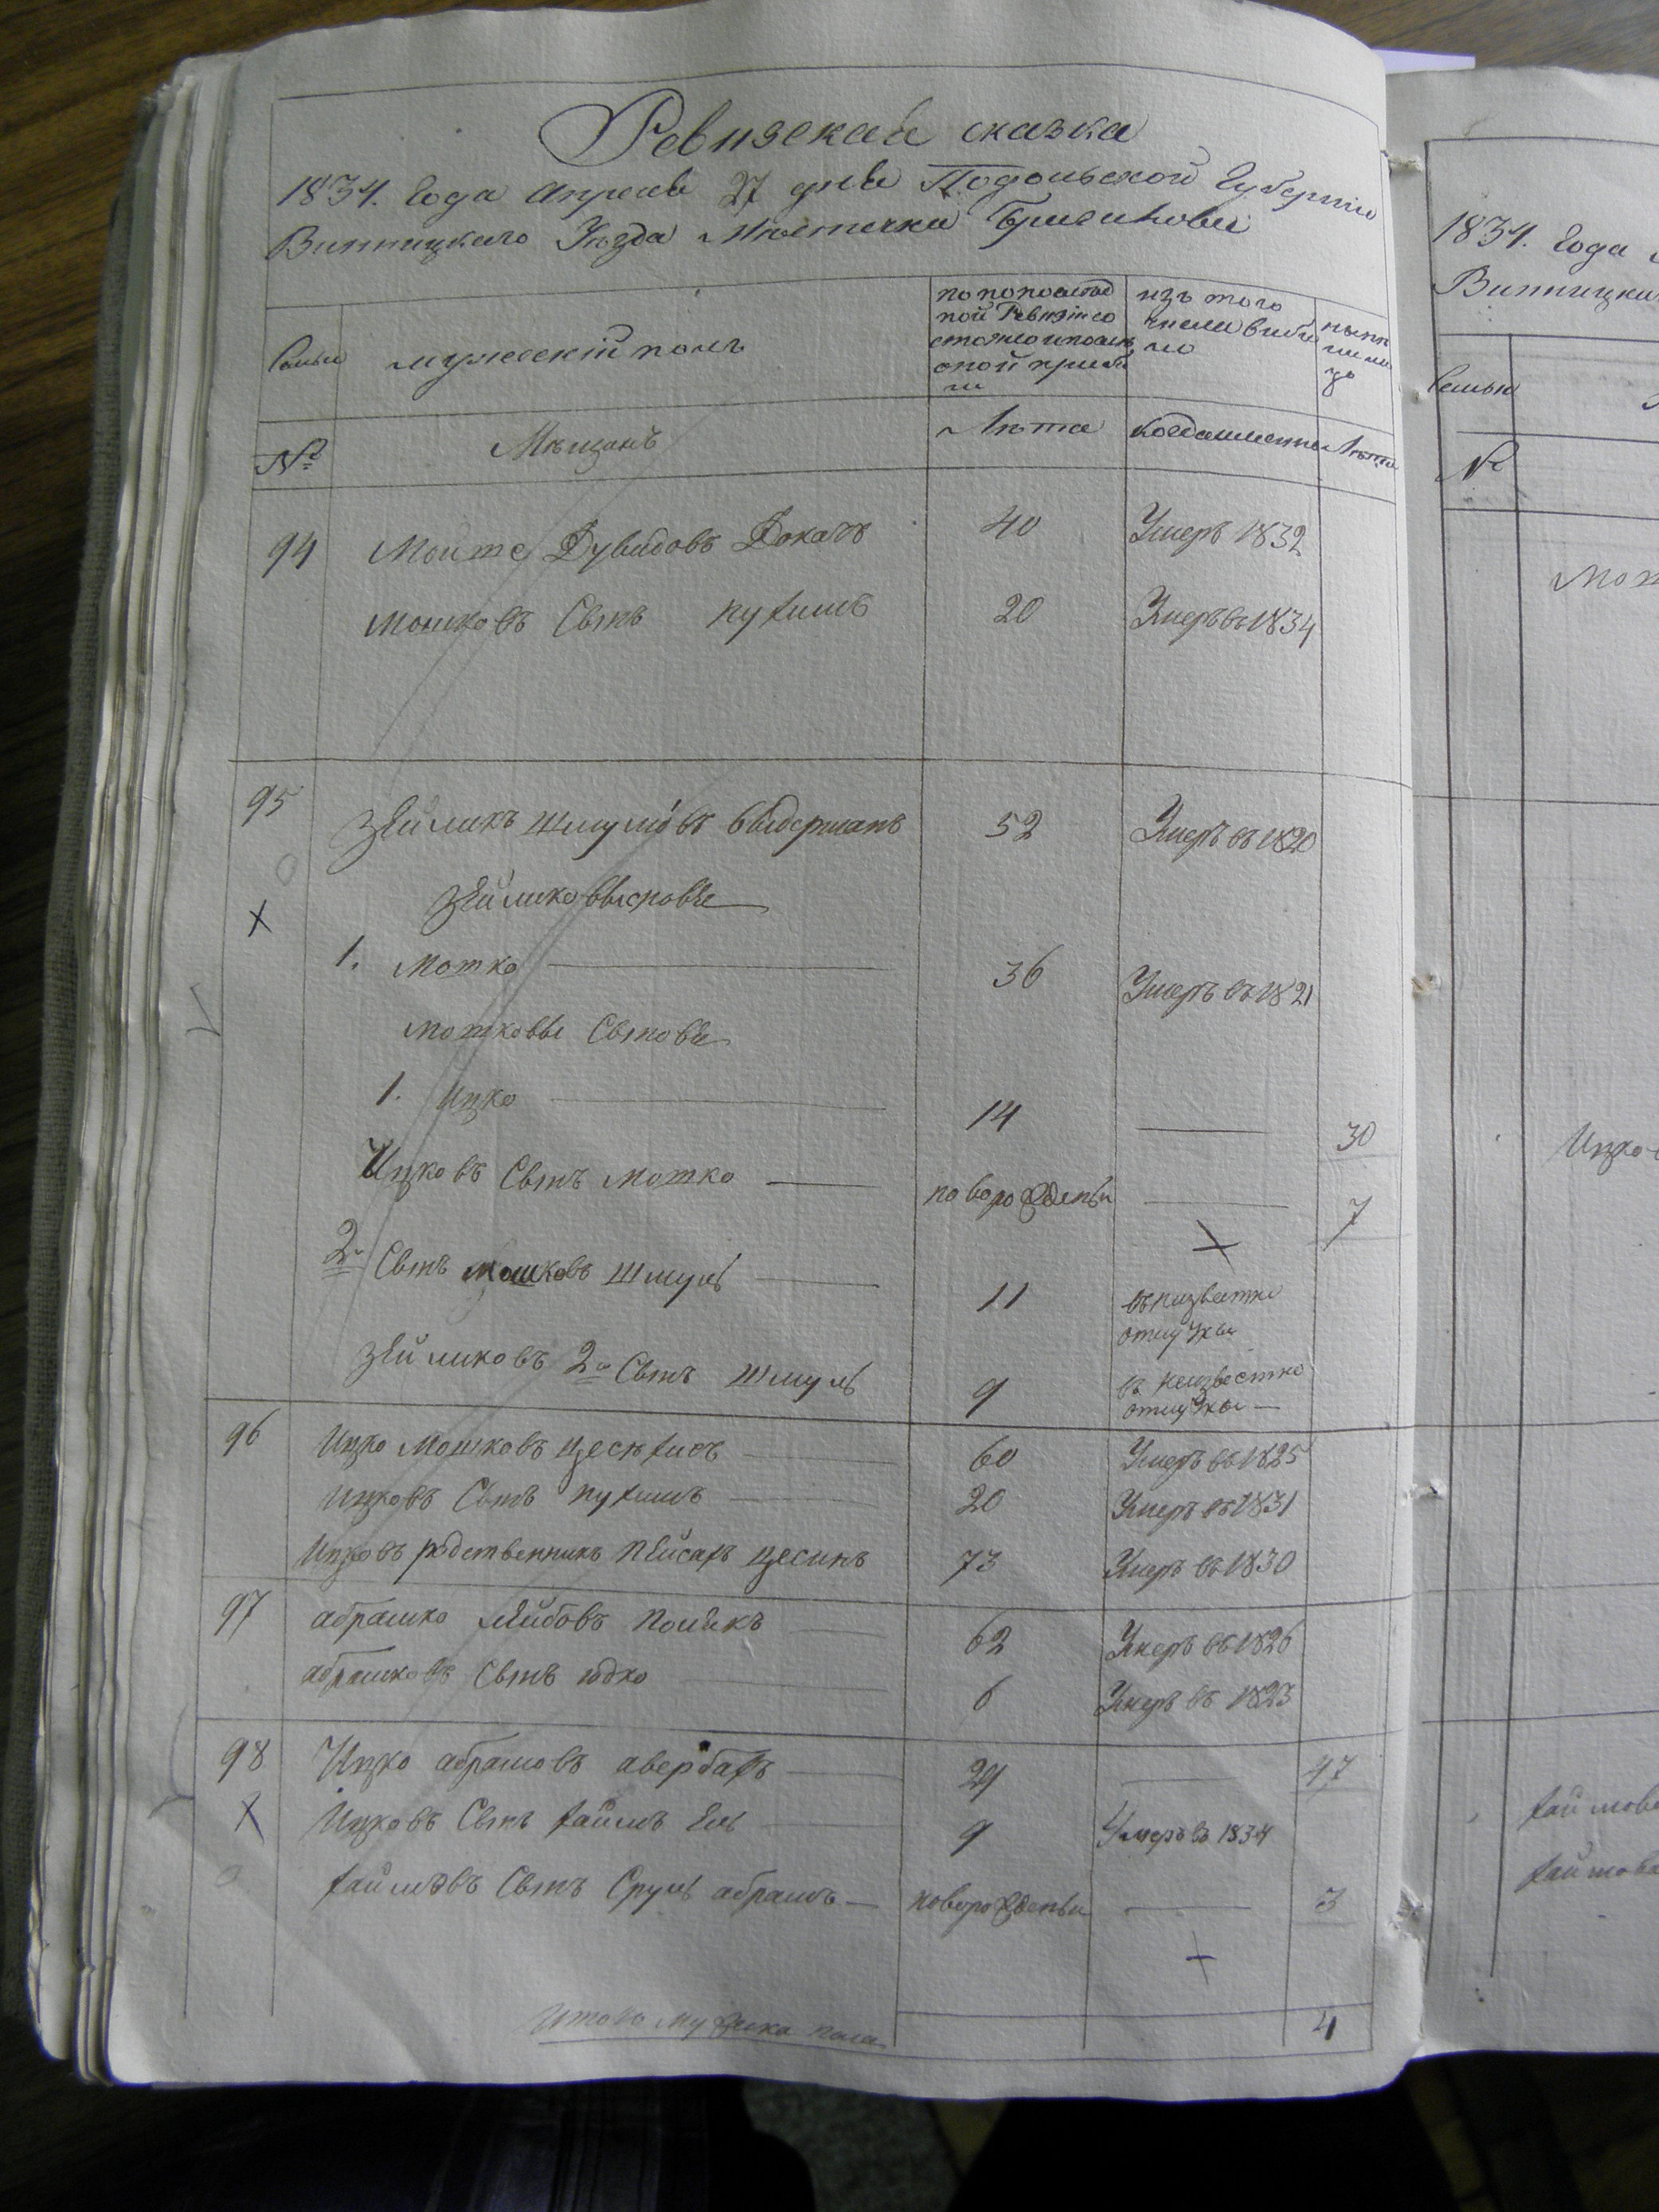 Ревизская сказка
1834. Года Апреля 27 дня Подольской Губернии
Винницкаго Уезда Местечка Браилова
Семьи
мужескiй полъ
по последней Ревизiи состояло и после оной прибыло
изъ того числа выбыло
ныне на лицо
№
Мещанъ
Лета
когда именно
Лета
94 Мошко Дувидовъ 40 Умеръ 1832
Мошковъ Сынъ нухимъ 20 Умеръ въ 1834
95 Зейликъ Шмулiовъ 52 Умеръ въ 1820
Зейликовы сновье
1. Мотко 36 Умеръ въ 1821
Мотковы Сыновье
1. Ицко 14 30
Ицковъ Сынъ Мотко новорожденъ 7
2й Сынъ Мошковъ Шмуль 11 въ неизвестно отлучкы
Зейликовъ 2й Сынъ Шмуль 9 въ неизвестно отлучкы
96 Ицко Мошковъ 60 Умеръ въ 1825
Ицковъ Сынъ нухимъ 20 Умеръ въ 1831
Ицковъ родственникъ Пейсахъ цесинъ 73 Умеръ въ 1830
97 абрамко Лейбовъ 62 Умеръ въ 1826
абрамковъ Сынъ юдко 6 Умеръ въ 1823
98 Ицко абрамовъ авербахъ 29 47
Ицковъ Сынъ хаимъ Ель 9 Умеръ въ 1834
хаимовъ Сынъ Сруль абрамъ новорожденъ 3
Итого мужеска пола 4
1834. Года
Винницка
Семьи
№
Ицко